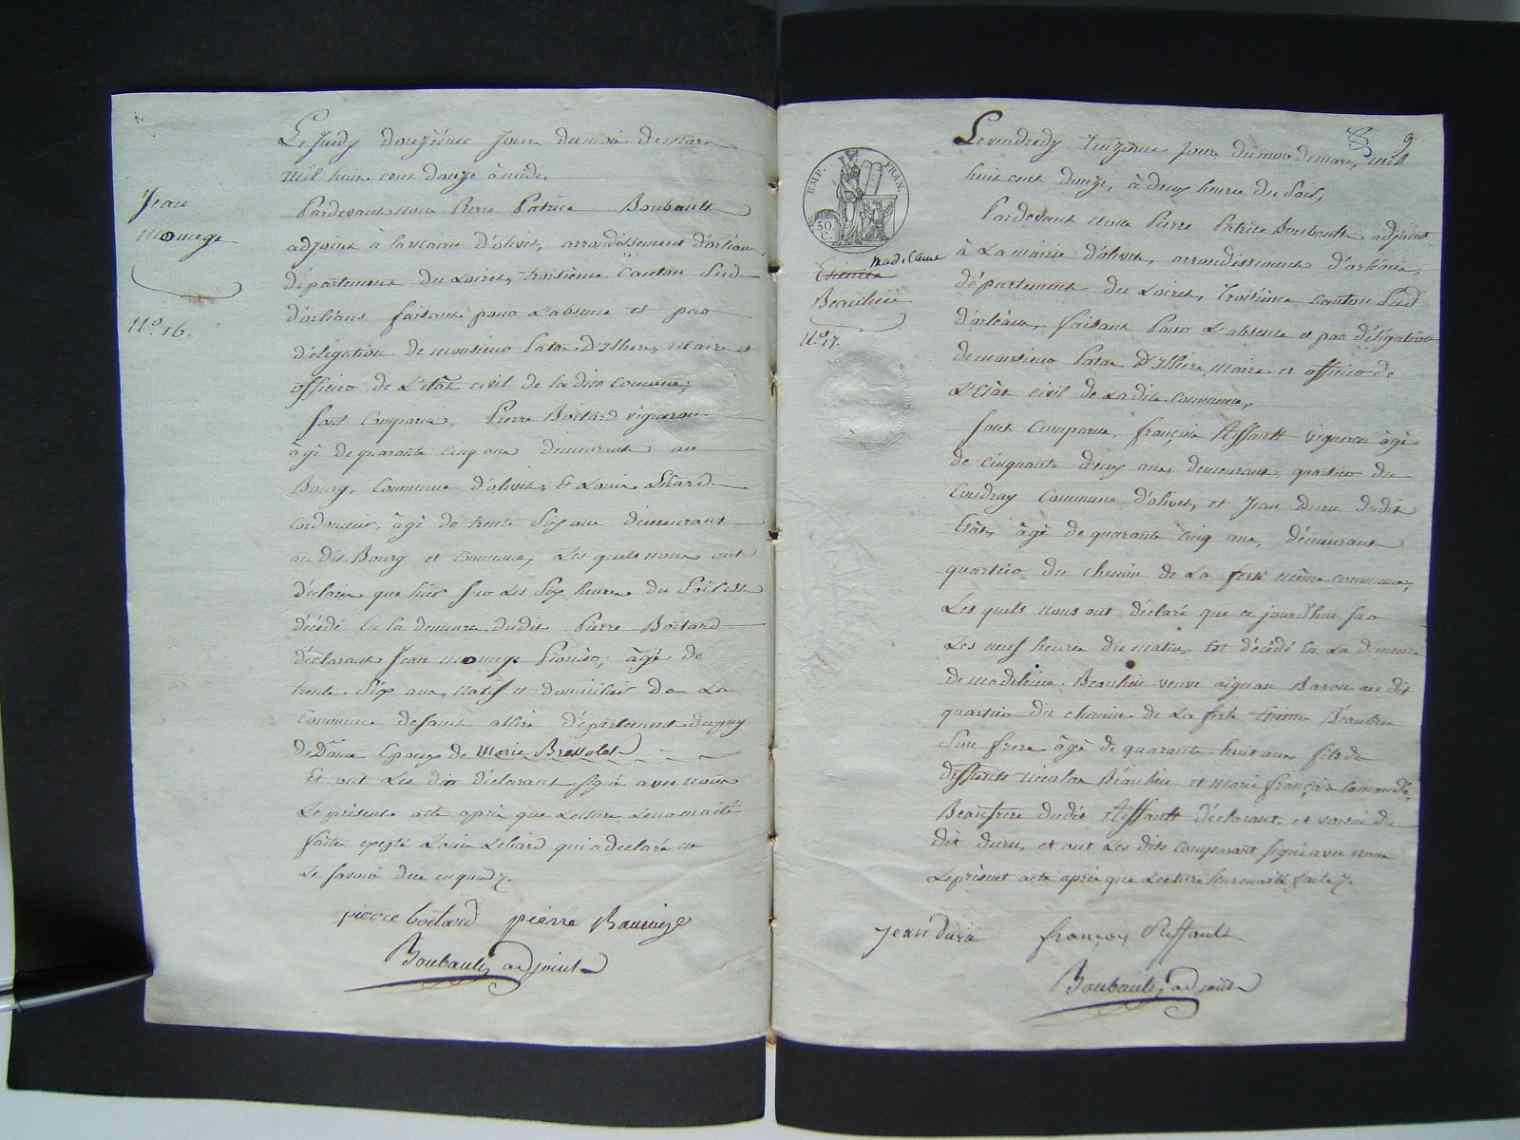 Jean
Monege
N.° 16.
Le Jeudy douzième jour du mois de mars
mil huit cent douze à midi,
Pardevant nous Pierre Patrice Boubault
adjoint à la mairie d'olivet, arrondissement d'orléans
département du Loiret, troisième Canton Sud
d'orléans faisant pour l'absence et par
délégation de monsieur Patas D'Illiers, maire et
officier de L'état civil de la dite commune,
Sont comparus, Pierre Boitard vigneron
âgé de quarante cinq ans demeurant au
Bourg, Commune d'olivet, Et Louis
Cordonnier, âgé de trente Six ans demeurant
au dit Bourg et commune, Les quels nous ont
déclaré que hier sur les Six heures du Soir est
décédé En la demeure dudit Pierre Boitard
déclarant Jean Monege Pionier, âgé de
trente Six ans, natif et domicilié de La
Commune de saint département du puy
de Dôme Epoux de Marie Bressolet
Et ont Les dits déclarant signé avec nous
Le présent acte après que Lecture Leur en a été
faite excepté Louis qui a déclaré ne
Le savoir de ce enquis
pierre boitard pierre
Boubault, adjoint
8 9
EMP. FRAN.
50
C.
Madelaine
Beaulieu
N.° 17.
Le vendredy treizième jour du mois de mars, mil
huit cent douze, à deux heures du Soir,
Pardevant Nous Pierre Patrice Boubault adjoint
à La mairie d'olivet, arrondissement d'orléans,
département du Loiret, Troisième canton Sud
d'orléans, faisant pour L'absence et par délégation
de monsieur Patas D'Illiers maire et officier de
L'Etat civil de La dite Commune,
Sont Comparus, françois Riffault vigneron âgé
de cinquante deux ans, demeurant quartier du
Coudray Commune d'olivet, et Jean Duru dudit
Etat, âgé de quarante cinq ans, demeurant
quartier du chemin de La ferté même commune,
Les quels nous ont déclaré que ce jourd'hui sur
Les neuf heures du matin, Est décédé En La demeure
de madelaine Beaulieu veuve aignan Baron au dit
quartier du chemin de La ferté Etienne Beaulieu
Son frere âgé de quarante huit ans fils de
deffunts nicolas Beaulieu et marie françoise
Beaufrere dudit Riffault déclarant et voisin du
dit duru, et ont Les dits comparant signé avec nous
Le présent acte après que Lecture leur en a été faite
Jean Duru françois Riffault
Boubault, adjoint